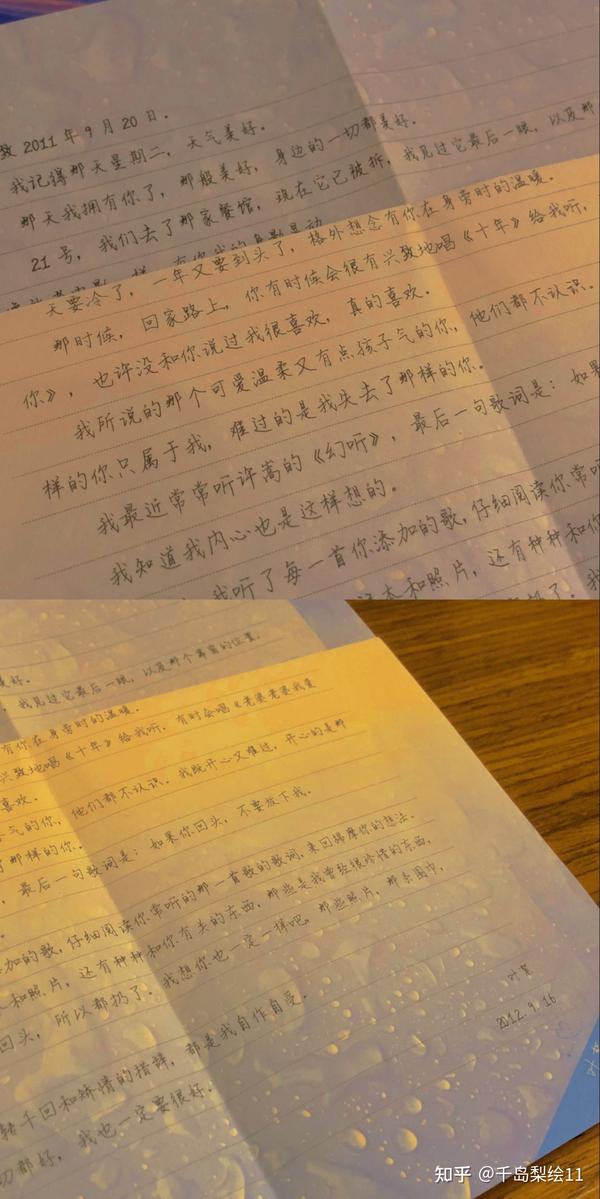 致 2011 年 9 月 20 日.
我记得那天星期二, 天气美好.
那天我拥有你了, 那般美好, 身边的一切都美好.
21 号, 我们去了那家餐馆, 现在它已被拆, 我见过它最后一眼, 以及那
天要冷了, 一年又要到头了, 格外想念有你在身旁时的温暖.
那时候, 回家路上, 你有时候会很有兴致地唱《十年》给我听,
你》, 也许没和你说过我很喜欢, 真的喜欢.
我所说的那个可爱温柔又有点孩子气的你, 他们都不认识.
样的你只属于我, 难过的是我失去了那样的你.
我最近常常听许嵩的《幻听》, 最后一句歌词是: 如果
我知道我内心也是这样想的.
我听了每一首你添加的歌, 仔细阅读你常听
和照片, 还有种种和你
扔了. 我
美好.
, 我见过它最后一眼, 以及那个靠窗的位置.
有你在身旁时的温暖.
兴致地唱《十年》给我听, 有时会唱《老婆老婆我爱
喜欢.
子气的你, 他们都不认识. 我既开心又难过, 开心的是那
了那样的你.
, 最后一句歌词是: 如果你回头, 不要放下我.
加的歌, 仔细阅读你常听的那一首歌的歌词, 来回揣摩你的想法.
和照片, 还有种种和你有关的东西, 那些是我曾经很珍惜的东西,
回头, 所以都扔了. 我想你也一定一样吧. 那些照片, 那条围巾,
转千回和矫情的措辞, 都是我自作自受.
切都好, 我也一定要很好.
2012. 9. 16
知乎 @千岛梨绘11